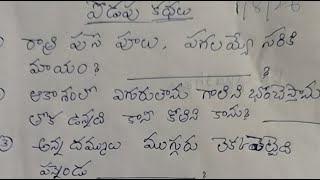 పొడుపు కథలు
రాత్రి పూసే పూలు, పగలయ్యే సరికి
మాయం?
ఆకాశంలో ఎగురుతాను గాలిని భరించేస్తాను
తోక ఉన్నది కాని కోతిని కాను?
③ అన్న దమ్ములు ముగ్గురు
పన్నెండు